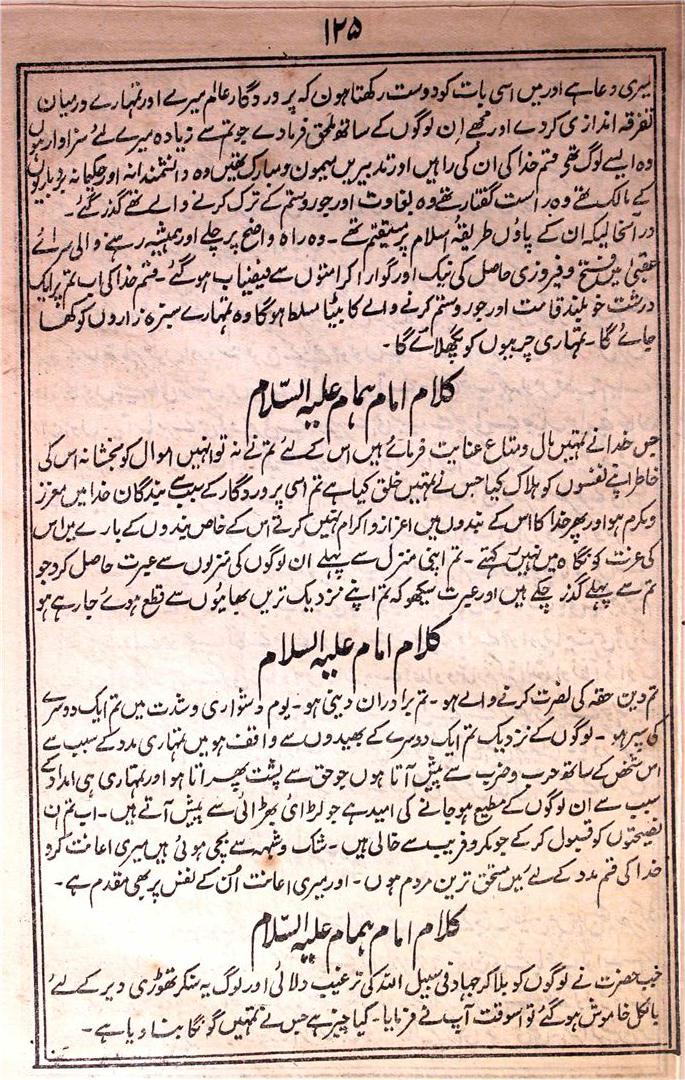 ۱۲۵
میری دعا ہے اور میں اسی بات کو دوست رکھتا ہون کہ پروردگار عالم میرے اور تمہارے درمیان
تفرقہ اندازی کردے اور مجھے ان لوگوں کے ساتھ ملحق فرما دے جو تم سے زیادہ میرے لئے سزاوار ہوں
وہ ایسے لوگ تھے قسم خدا کی ان کی راہیں اور تدبیریں میمون ومبارک تھیں وہ دانشمندانہ اور حکیمانہ بردباریوں
کے مالک تھے وہ راست گفتار تھے وہ بغاوت اور جور وستم کے ترک کرنے والے تھے گذر گئے۔
درآنحالیکہ ان کے پاؤں طریقۂ اسلام پر مستقیم تھے۔ وہ راہ واضح پر چلے اور ہمیشہ رہنے والی سرائے
عقبیٰ میں فتح وفیروزی حاصل کی نیک اور گوارا کرامتوں سے فیضیاب ہوگئے۔ قسم خدا کی اب تم پر ایک
درشت خو بلند قامت اور جور وستم کرنے والے کا بیٹا مسلط ہوگا وہ تمہارے سبزہ زاروں کو کھا
جائے گا۔ تمہاری چربیوں کو پگھلائے گا۔
کلام امام ہمام علیہ السّلام
جس خدا نے تمہیں مال ومتاع عنایت فرمائے ہیں اس کے لئے تم نے نہ تو انہیں اموال کو بخشا نہ اس کی
خاطر اپنے نفسوں کو ہلاک کیا جس نے تمہیں خلق کیا ہے تم اسی پروردگار کے سبب سے بندگان خدا میں معزز
ومکرم ہو اور پھر خدا کا اس کے بندوں میں اعزاز واکرام نہیں کرتے اس کے خاص بندوں کے بارے میں اس
کی عزت کو نگاہ میں نہیں رکھتے۔ تم اپنی منزل سے پہلے ان لوگوں کی منزلوں سے عبرت حاصل کرو جو
تم سے پہلے گذر چکے ہیں اور عبرت سیکھو کہ تم اپنے نزدیک تریں بھائیوں سے قطع ہوئے جا رہے ہو
کلام امام علیہ السلام
تم دین حقہ کی نصرت کرنے والے ہو۔ تم برادران دینی ہو۔ یوم دشواری وشدت میں تم ایک دوسرے
کی سپر ہو۔ لوگوں کے نزدیک تم ایک دوسرے کے بھیدوں سے واقف ہو میں تمہاری مدد کے سبب سے
اس شخص کے ساتھ حرب وضرب سے پیش آتا ہوں جو حق سے پشت پھراتا ہو اور تمہاری ہی امداد کے
سبب سے ان لوگوں کے مطیع ہوجانے کی امید ہے جو لڑائی بھڑائی سے پیش آتے ہیں۔ اب تم ان
نصیحتوں کو قبول کر کے جو مکر وفریب سے خالی ہیں۔ شک وشبہہ سے بچی ہوئی ہیں میری اعانت کرو
خدا کی قسم مدد کے لئے میں مستحق ترین مردم ہوں۔ اور میری اعانت اُن کے نفس پر بھی مقدم ہے۔
کلام امام ہمام علیہ السّلام
جب حضرت نے لوگوں کو بلاکر جہاد فی سبیل اللہ کی ترغیب دلائی اور لوگ یہ سنکر تھوڑی دیر کے لئے
بالکل خاموش ہوگئے تو اسوقت آپ نے فرمایا۔ کیا چیز ہے جس نے تمہیں گونگا بنا دیا ہے۔